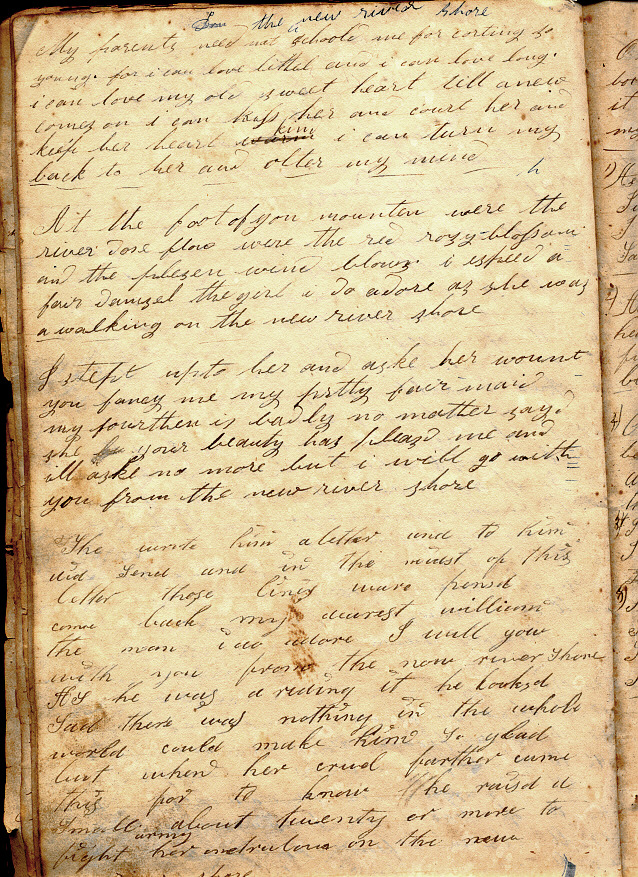 the new river shore
My parents need not schoole me for corting so
young. for i can love littel and i can love long.
i can love my old sweet heart till anew
comes on i can kiss her and court her and
keep her heart kind i can turn my
back to her and olter my mind
At the foot of you mounten were the
river dose flow were the red rosy blossom
and the plesen wind blows. i espied a
fair damzel the girl i do adore as she was
a walking on the new river shore
I stept up to her and aske her wount
you fancy me my pritty fair maid
my fourthen is badly no mather sayd
she your beauty has pleasd me and
ill aske no more but i will go with
you from the new river shore
She wrote him a letter and to him
did send and in the midst of this
letter those lines ware pensd
come back my dearest william
the man i do adore I will gow
with you from the now river shore
As he was a riding it he looked
Sad there was nothing in the whole
world could make him so glad
but when her crual farther came
this for to know he raisd a
Small army about twenty or more to
fight her on the new
shore